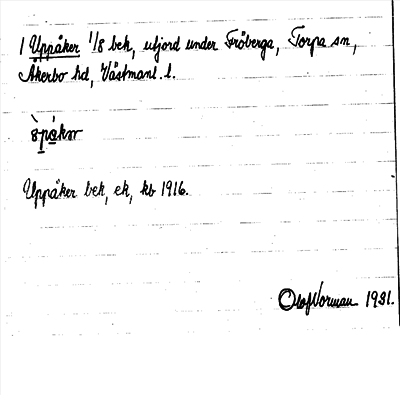 1 Uppåker 1/8 bek, utjord under Fröberga, Torpa sn,
Åkerbo hd, Västmanl. l.
Uppåker bek, ek, kb 1916.
Olof Norman 1931.